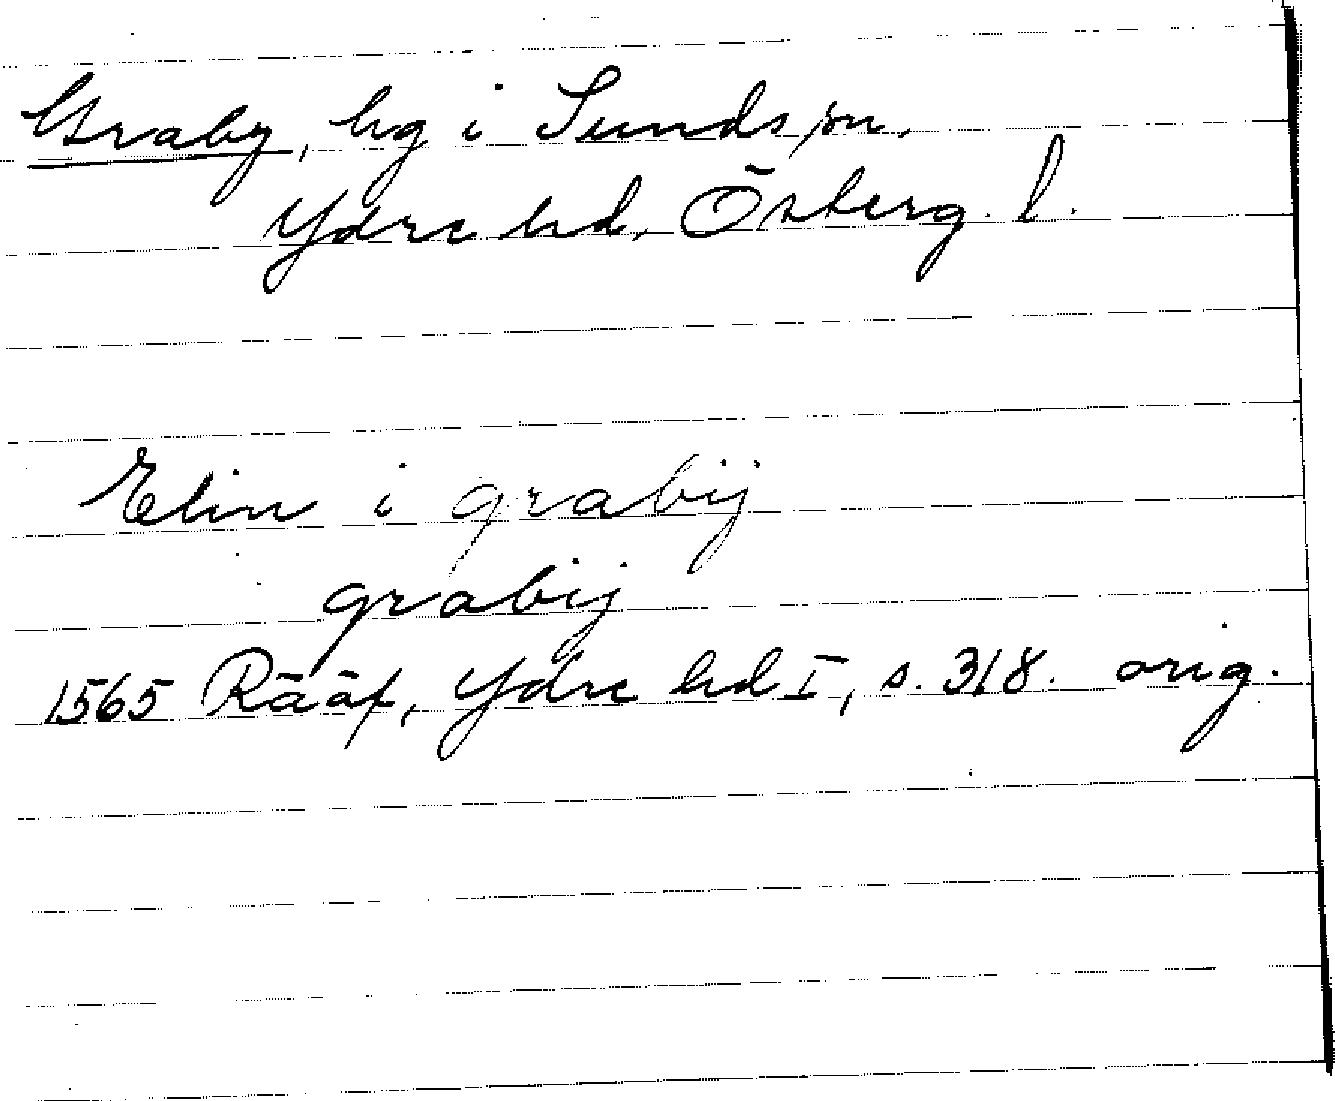 Graby, hg i Sunds sn.
Ydre hd, Österg. l.
Elin i grabij
grabij
1565 Rääf, Ydre hd I, s. 318. orig.